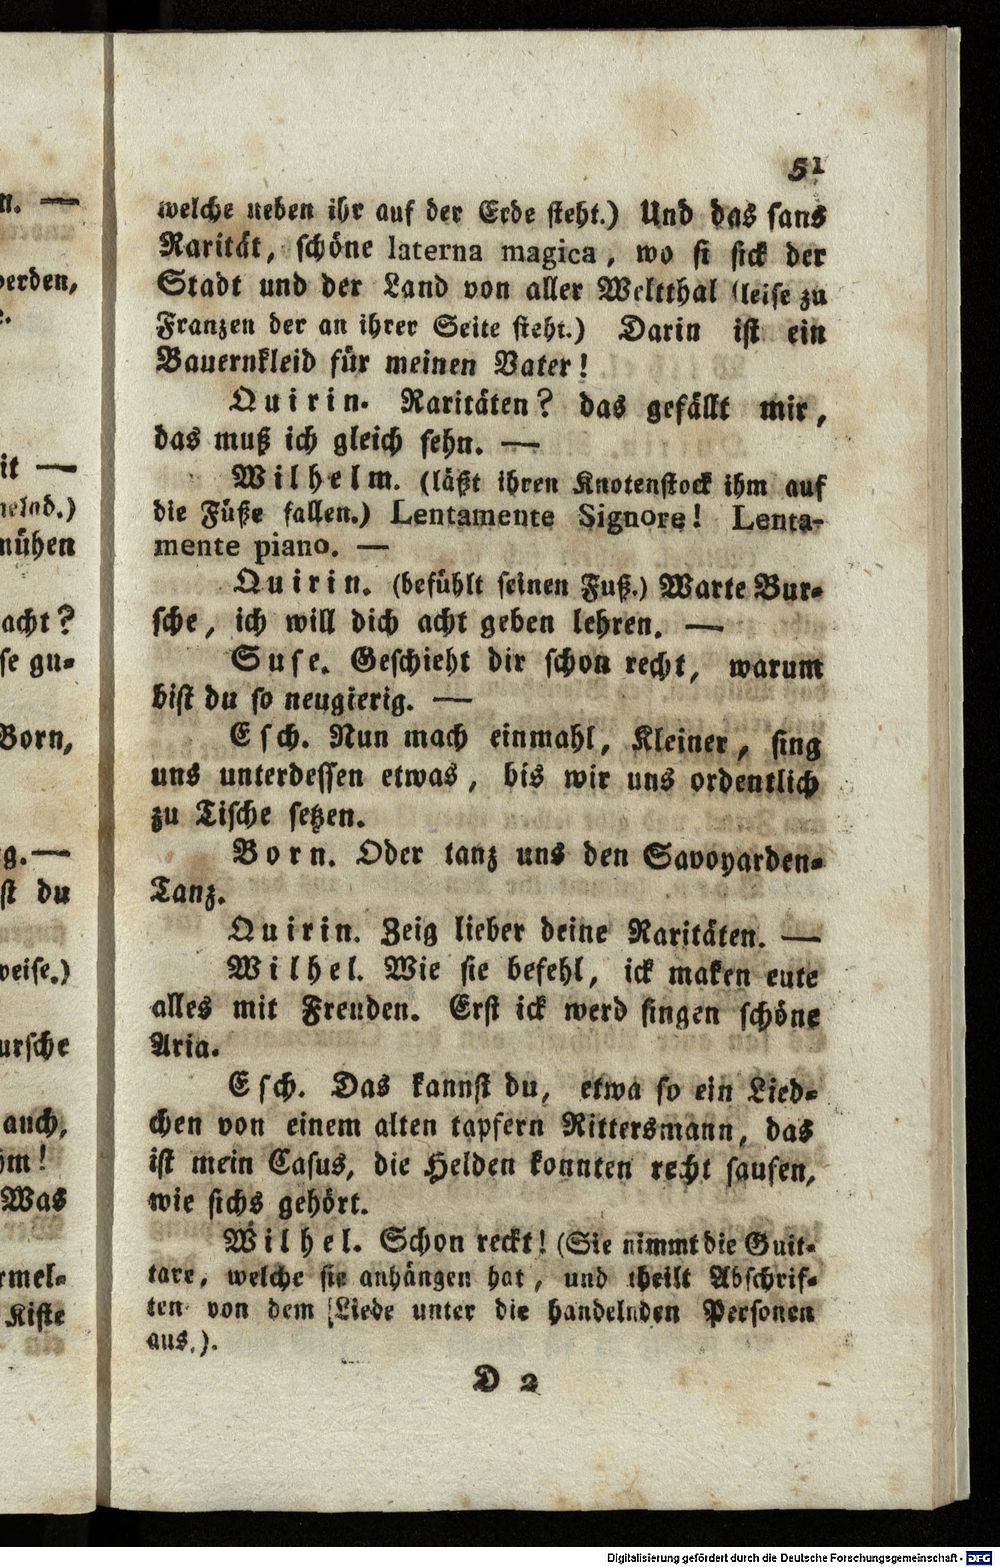 51
welche neben ihr auf der Erde steht.) Und das sans
Rarität, schöne laterna magica, wo si sick der
Stadt und der Land von aller Weltthal (leise zu
Franzen der an ihrer Seite steht.) Darin ist ein
Bauernkleid für meinen Vater!
Quirin. Raritäten? das gefällt mir,
das muß ich gleich sehn. —
Wilhelm. (läßt ihren Knotenstock ihm auf
die Füße fallen.) Lentamente Signore! Lenta-
mente piano. —
Quirin. (befühlt seinen Fuß.) Warte Bur-
sche, ich will dich acht geben lehren. —
Suse. Geschieht dir schon recht, warum
bist du so neugierig. —
Esch. Nun mach einmahl, Kleiner, sing
uns unterdessen etwas, bis wir uns ordentlich
zu Tische setzen.
Born. Oder tanz uns den Savoyarden-
Tanz.
Quirin. Zeig lieber deine Raritäten. —
Wilhel. Wie sie befehl, ick maken eute
alles mit Freuden. Erst ick werd singen schöne
Aria.
Esch. Das kannst du, etwa so ein Lied-
chen von einem alten tapfern Rittersmann, das
ist mein Casus, die Helden konnten recht saufen,
wie sichs gehört.
Wilhel. Schon reckt! (Sie nimmt die Guit-
tare, welche sie anhängen hat, und theilt Abschrif-
ten von dem Liede unter die handelnden Personen
aus.).
D 2
n. —
werden,
it —
mühen
acht?
se gu-
Born,
g.—
st du
weise.)
ursche
auch,
hm!
Was
rmel-
Kiste
Digitalisierung gefördert durch die Deutsche Forschungsgemeinschaft - DFG